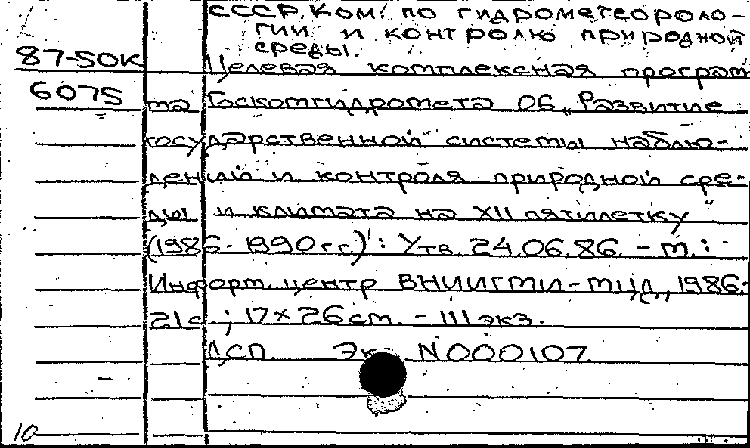 СССР. Ком. по гидрометеороло-
гии и контролю природной
среды.
87-50К Целевая комплексная програм
6075 ма Госкомгидромета 06 „Развитие
государственной системы наблю-
дений и контроля природной сре-
ды и климата на XII пятилетку
(1986-1990 гг)": Утв. 24.06.86. - М.:
Информ. центр ВНИИГМИ-МЦД, 1986.
21с ; 17×26 см. - 111 экз.
ДСП. Экз. N000107.
10